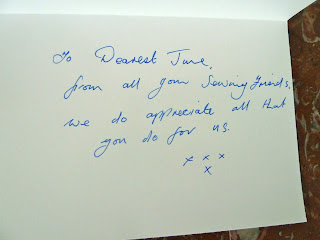 To Dearest June,
from all your Sewing Friends,
we do appreciate all that
you do for us.
x x x
x